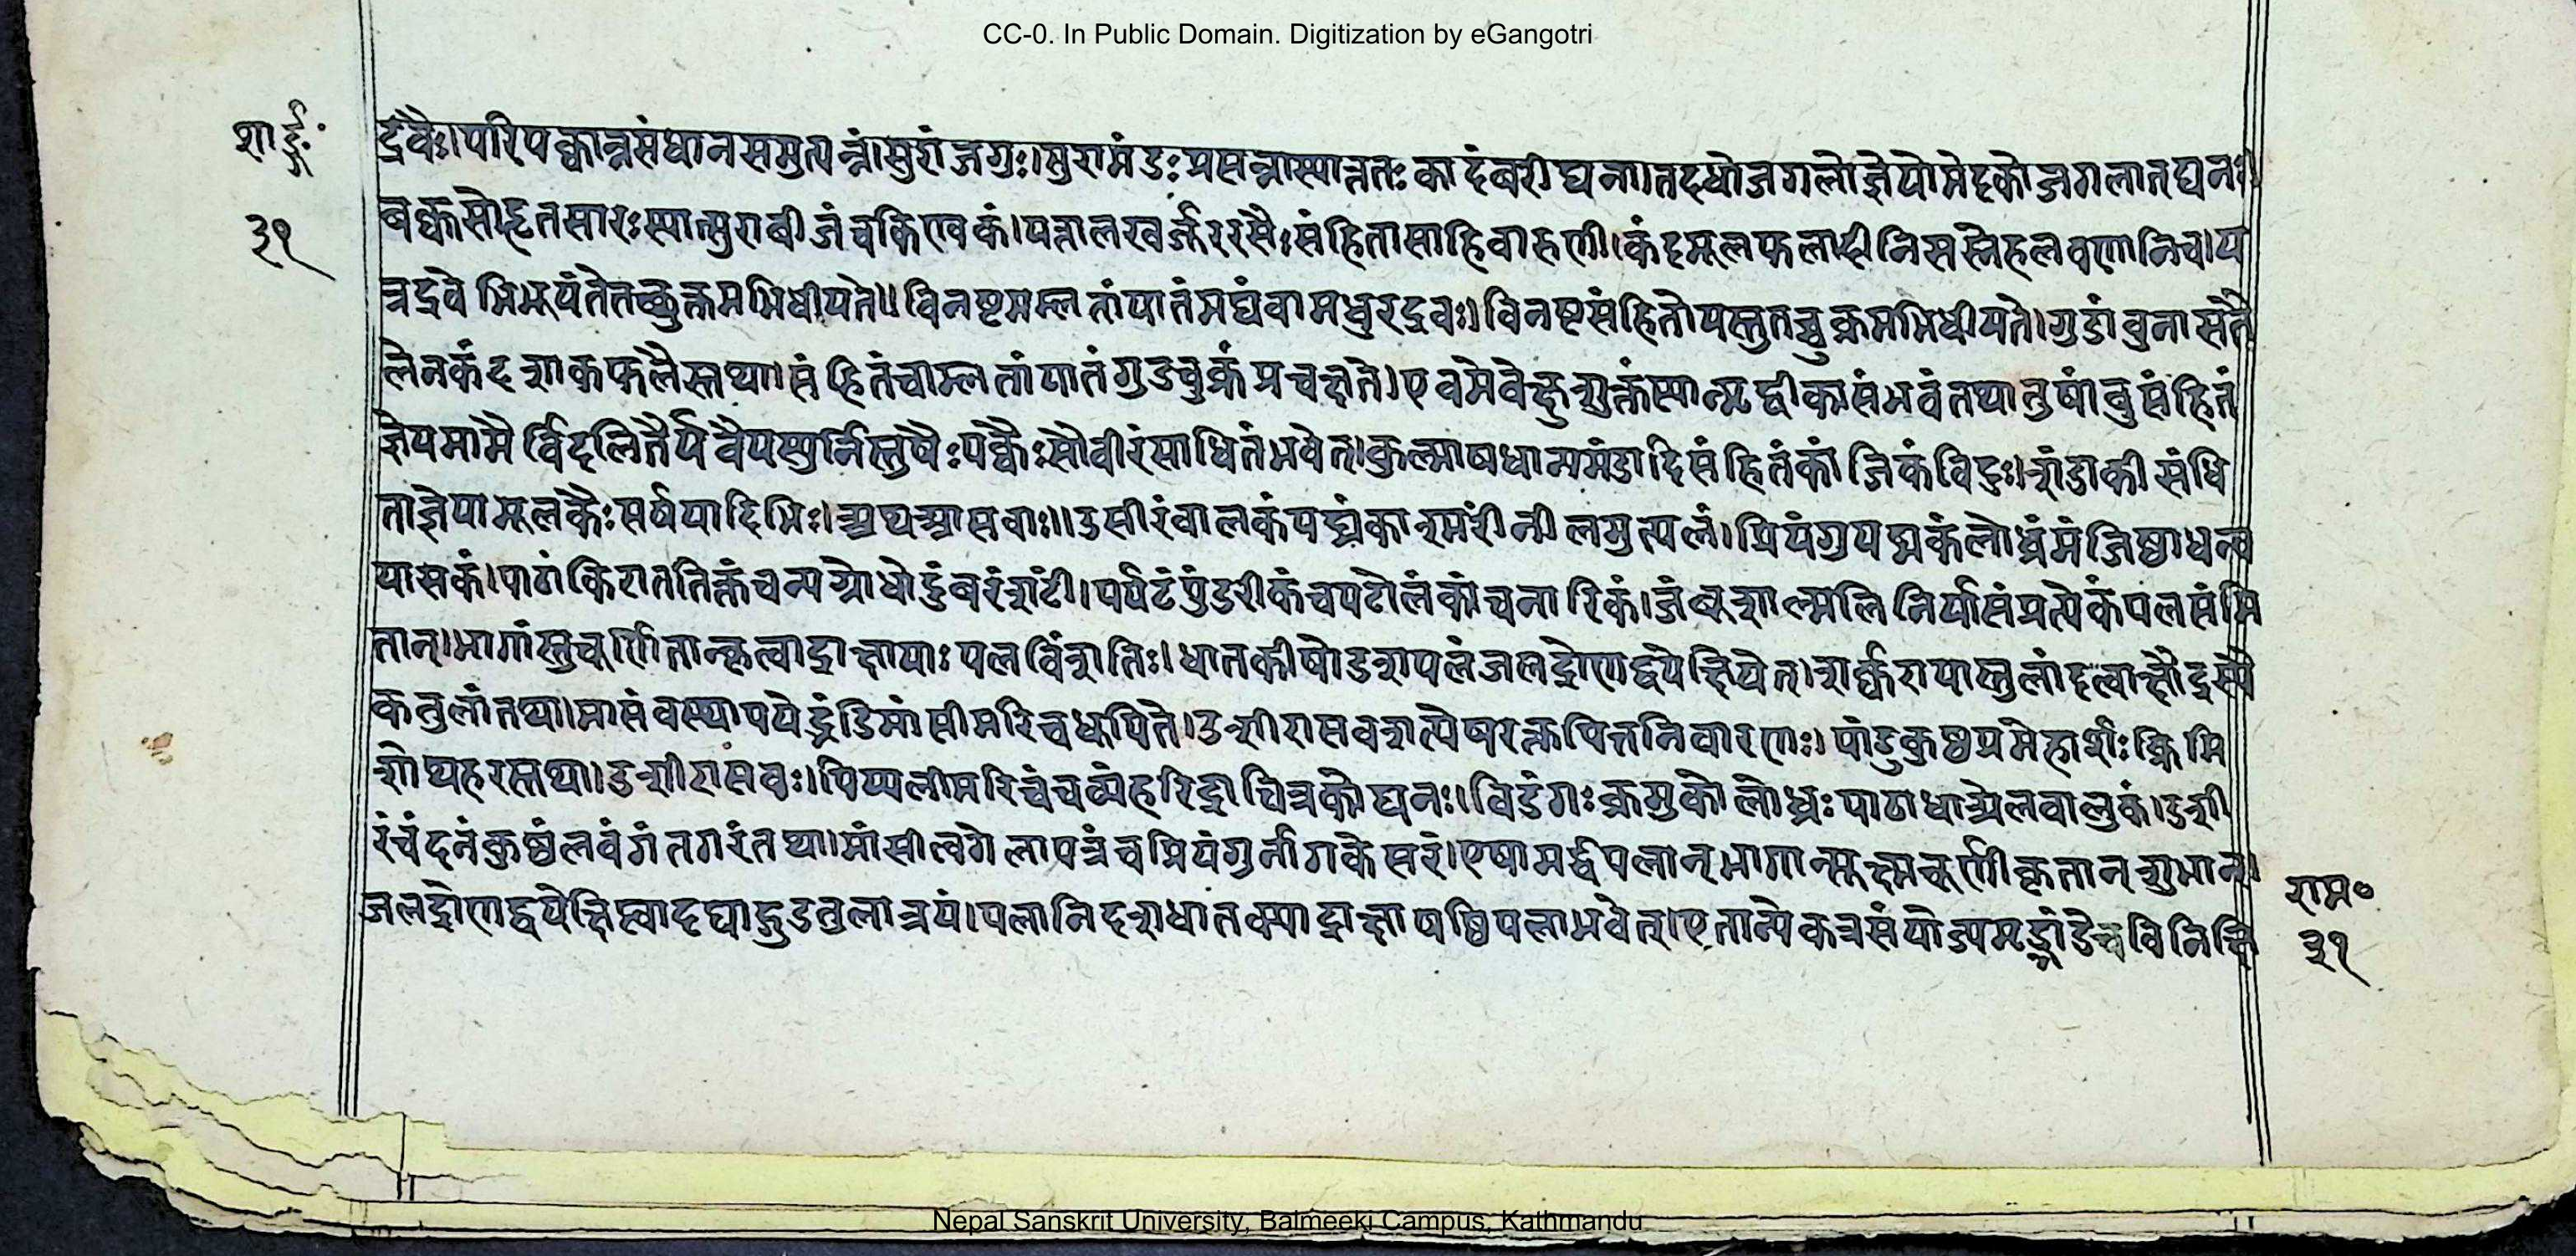 CC-0. In Public Domain. Digitization by eGangotri
शार्ङ्गः
३१
द्रवैः।परिपक्वान्नसंधानसमुत्पन्नां।सुरां जगुः।सुरामंडः प्रसन्नास्यात्ततः कादंबरी घना।तदधोजगलोज्ञेयोमेदकोजगलात् घनः।
बक्कसोहृतसारः स्यात्सुराबीजं च किण्वकं।यत्तालखर्जूररसैः संहितासाहिवारुणी।कंदमूलफलादीनि सस्नेहलवणानि च।य
त्रद्रवेभिषूयंतेतच्छुक्तमभिधीयते॥विनष्टमम्लतांयातं मद्यं वा मधुरद्रवः।विनष्टसंहितोयस्तुतच्चुक्रमभिधीयते।गुडांबुनासतै
लेनकंदशाकफलैस्तथा।संहितंचाम्लतांयातं गुडचुक्रं प्रचक्षते।एवमेवेक्षुशुक्तंस्यान्मृद्वीकासंभवंतथातुषांबुसंहितं
ज्ञेयमामैर्विदलितैर्यवैयस्तुर्निस्तुषैः पक्वैः सौवीरंसाधितंभवेत्।कुल्माषधान्यमंडादिसंहितंकांजिकंविदुः।शंडाकीसंधि
ताज्ञेयामूलकैः सर्षपादिभिः।अथआसवाः॥उसीरंवालकंपद्मंकाश्मरींनीलमुत्पलं।प्रियंगुपद्मकंलोध्रंमंजिष्ठाधन्व
यासकं।पाठांकिराततिक्तंचन्यग्रोधोदुंबरंशटीं।पर्पटंपुंडरीकंचपटोलंकांचनारिकं।जंबूशाल्मलिनिर्यासंप्रत्येकंपलसंमि
तान्।भागांस्तुचूर्णितान्कृत्वाद्राक्षायाः पलविंशतिः।धातकीषोडशपलंजलद्रोणद्वयेक्षिपेत्।शर्करायास्तुलांदत्वाक्षौद्रस्यै
कतुलांतथा।मासंवस्थापयेद्भंडेमांसीमरिचधूपिते।उशीरासवइत्येषरक्तपित्तनिवारणः।पांडुकुष्ठप्रमेहार्शः क्रिमि
शोथहरस्तथा।उशीरासवः।पिप्पलीमरिचंचव्यंहरिद्राचित्रकोघनः।विडंगः क्रमुकोलोध्रः पाठाधात्र्येलवालुकं।उशी
रंचंदनंकुष्ठंलवंगंतगरंतथा।मांसीत्वगेलापत्रंचप्रियंगुर्नागकेसरं।एषामर्द्धपलान्भागान्सूक्ष्मचूर्णीकृतान्शुभान्।
जलद्रोणद्वयेक्षिप्त्वादद्याद्गुडतुलात्रयं।पलानिदशधातक्याद्राक्षाषष्ठिपलाभवेत्।एतान्येकत्रसंयोज्यमृद्भांडेचविनिक्षि
राम०
३१
Nepal Sanskrit University, Balmeeki Campus, Kathmandu